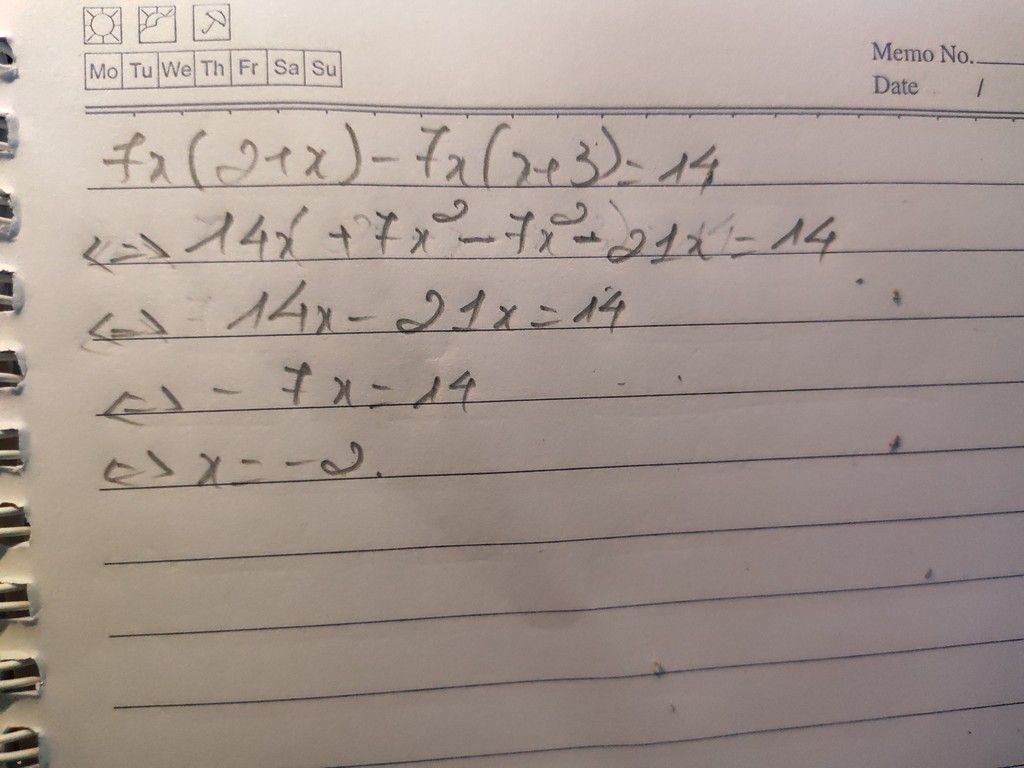 Mo Tu We Th Fr Sa Su
Memo No.
Date /
7x(2+x)-7x(x+3)=14
<=> 14x+7x²-7x²-21x=14
<=> 14x-21x=14
<=> -7x=14
<=> x=-2.